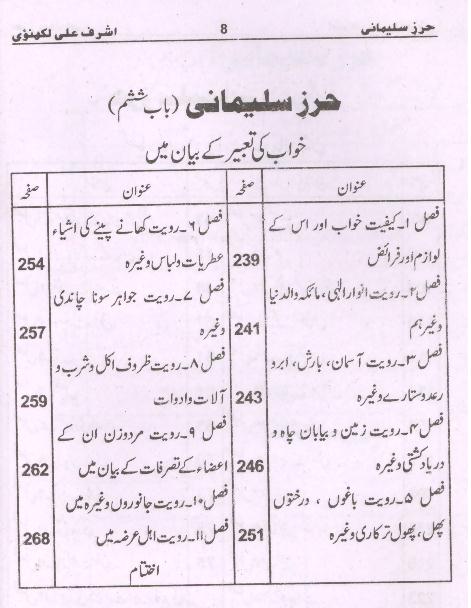 حرز سلیمانی 8 اشرف علی لکھنؤی
حرز سلیمانی (باب ششم)
خواب کی تعبیر کے بیان میں
عنوان صفحہ
فصل ۱۔ کیفیت خواب اور اس کے
لوازم اور فرائض 239
فصل ۲۔ رویت انوار الہی، مائکہ والدنیا
وغیرہم 241
فصل ۳۔ رویت آسمان، بارش، ابرو
رعدوستارے وغیرہ 243
فصل ۴۔ رویت زمین و بیابان چاہ و
دریا کشتی وغیرہ 246
فصل ۵۔ رویت باغوں، درختوں
پھل، پھول ترکاری وغیرہ 251
عنوان صفحہ
فصل ۶۔ رویت کھانے پینے کی اشیاء
عطریات ولباس وغیرہ 254
فصل ۷۔ رویت جواہر سونا چاندی
وغیرہ 257
فصل ۸۔ رویت ظروف اکل وشرب و
آلات وادوات 259
فصل ۹۔ رویت مردوزن ان کے
اعضاء کے تصرفات کے بیان میں 262
فصل ۱۰۔ رویت جانوروں وغیرہ میں
فصل ۱۱۔ رویت اہل عرضہ میں 268
اختتام